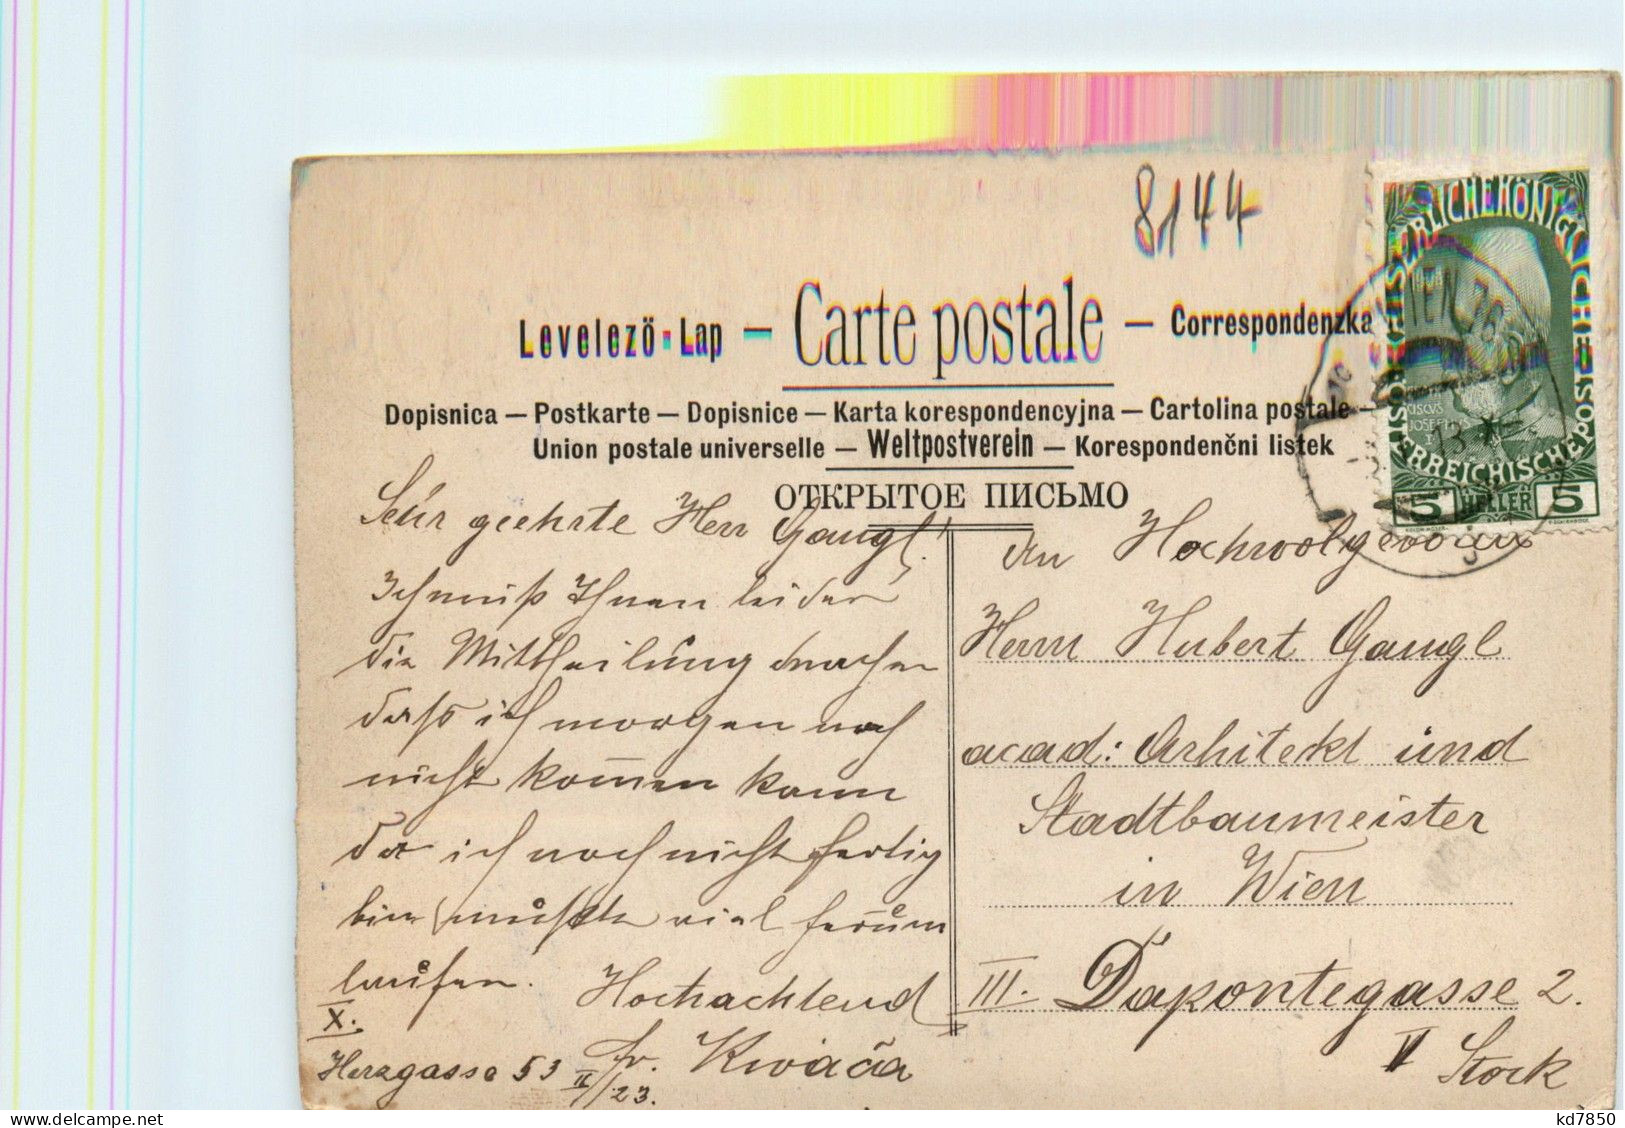 8144
Levelezö-Lap — Carte postale — Correspondenzka
Dopisnica — Postkarte — Dopisnice — Karta korespondencyjna — Cartolina postale —
Union postale universelle — Weltpostverein — Korespondenčni listek
ОТКРЫТОЕ ПИСЬМО
WIEN 76
1908
5 HELLER 5
Sehr geehrte Herr Gaugl!
Ich muß Ihnen leider
die Mittheilung machen
daß ich morgen noch
nicht kommen kann
da ich noch nicht fertig
bin mußte viel herum
laufen. Hochachtend
Fr. Kwača
X. Herzgasse 53 II/23.
An Hochwolgeboren
Herrn Hubert Gaugl
acad: Arhiteckt und
Stadtbaumeister
in Wien
III. Dapontegasse 2.
Stock
kd7850